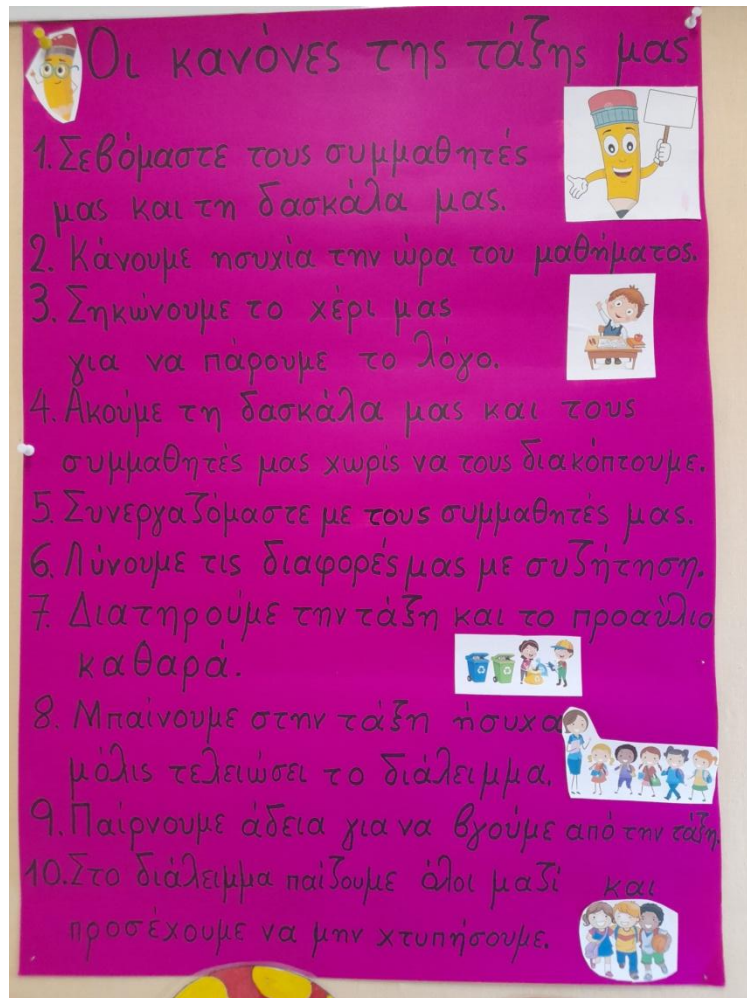 Οι κανόνες της τάξης μας
1. Σεβόμαστε τους συμμαθητές
μας και τη δασκάλα μας.
2. Κάνουμε ησυχία την ώρα του μαθήματος.
3. Σηκώνουμε το χέρι μας
για να πάρουμε το λόγο.
4. Ακούμε τη δασκάλα μας και τους
συμμαθητές μας χωρίς να τους διακόπτουμε.
5. Συνεργαζόμαστε με τους συμμαθητές μας.
6. Λύνουμε τις διαφορές μας με συζήτηση.
7. Διατηρούμε την τάξη και το προαύλιο
καθαρά.
8. Μπαίνουμε στην τάξη ήσυχα
μόλις τελειώσει το διάλειμμα.
9. Παίρνουμε άδεια για να βγούμε από την τάξη.
10. Στο διάλειμμα παίζουμε όλοι μαζί και
προσέχουμε να μην χτυπήσουμε.